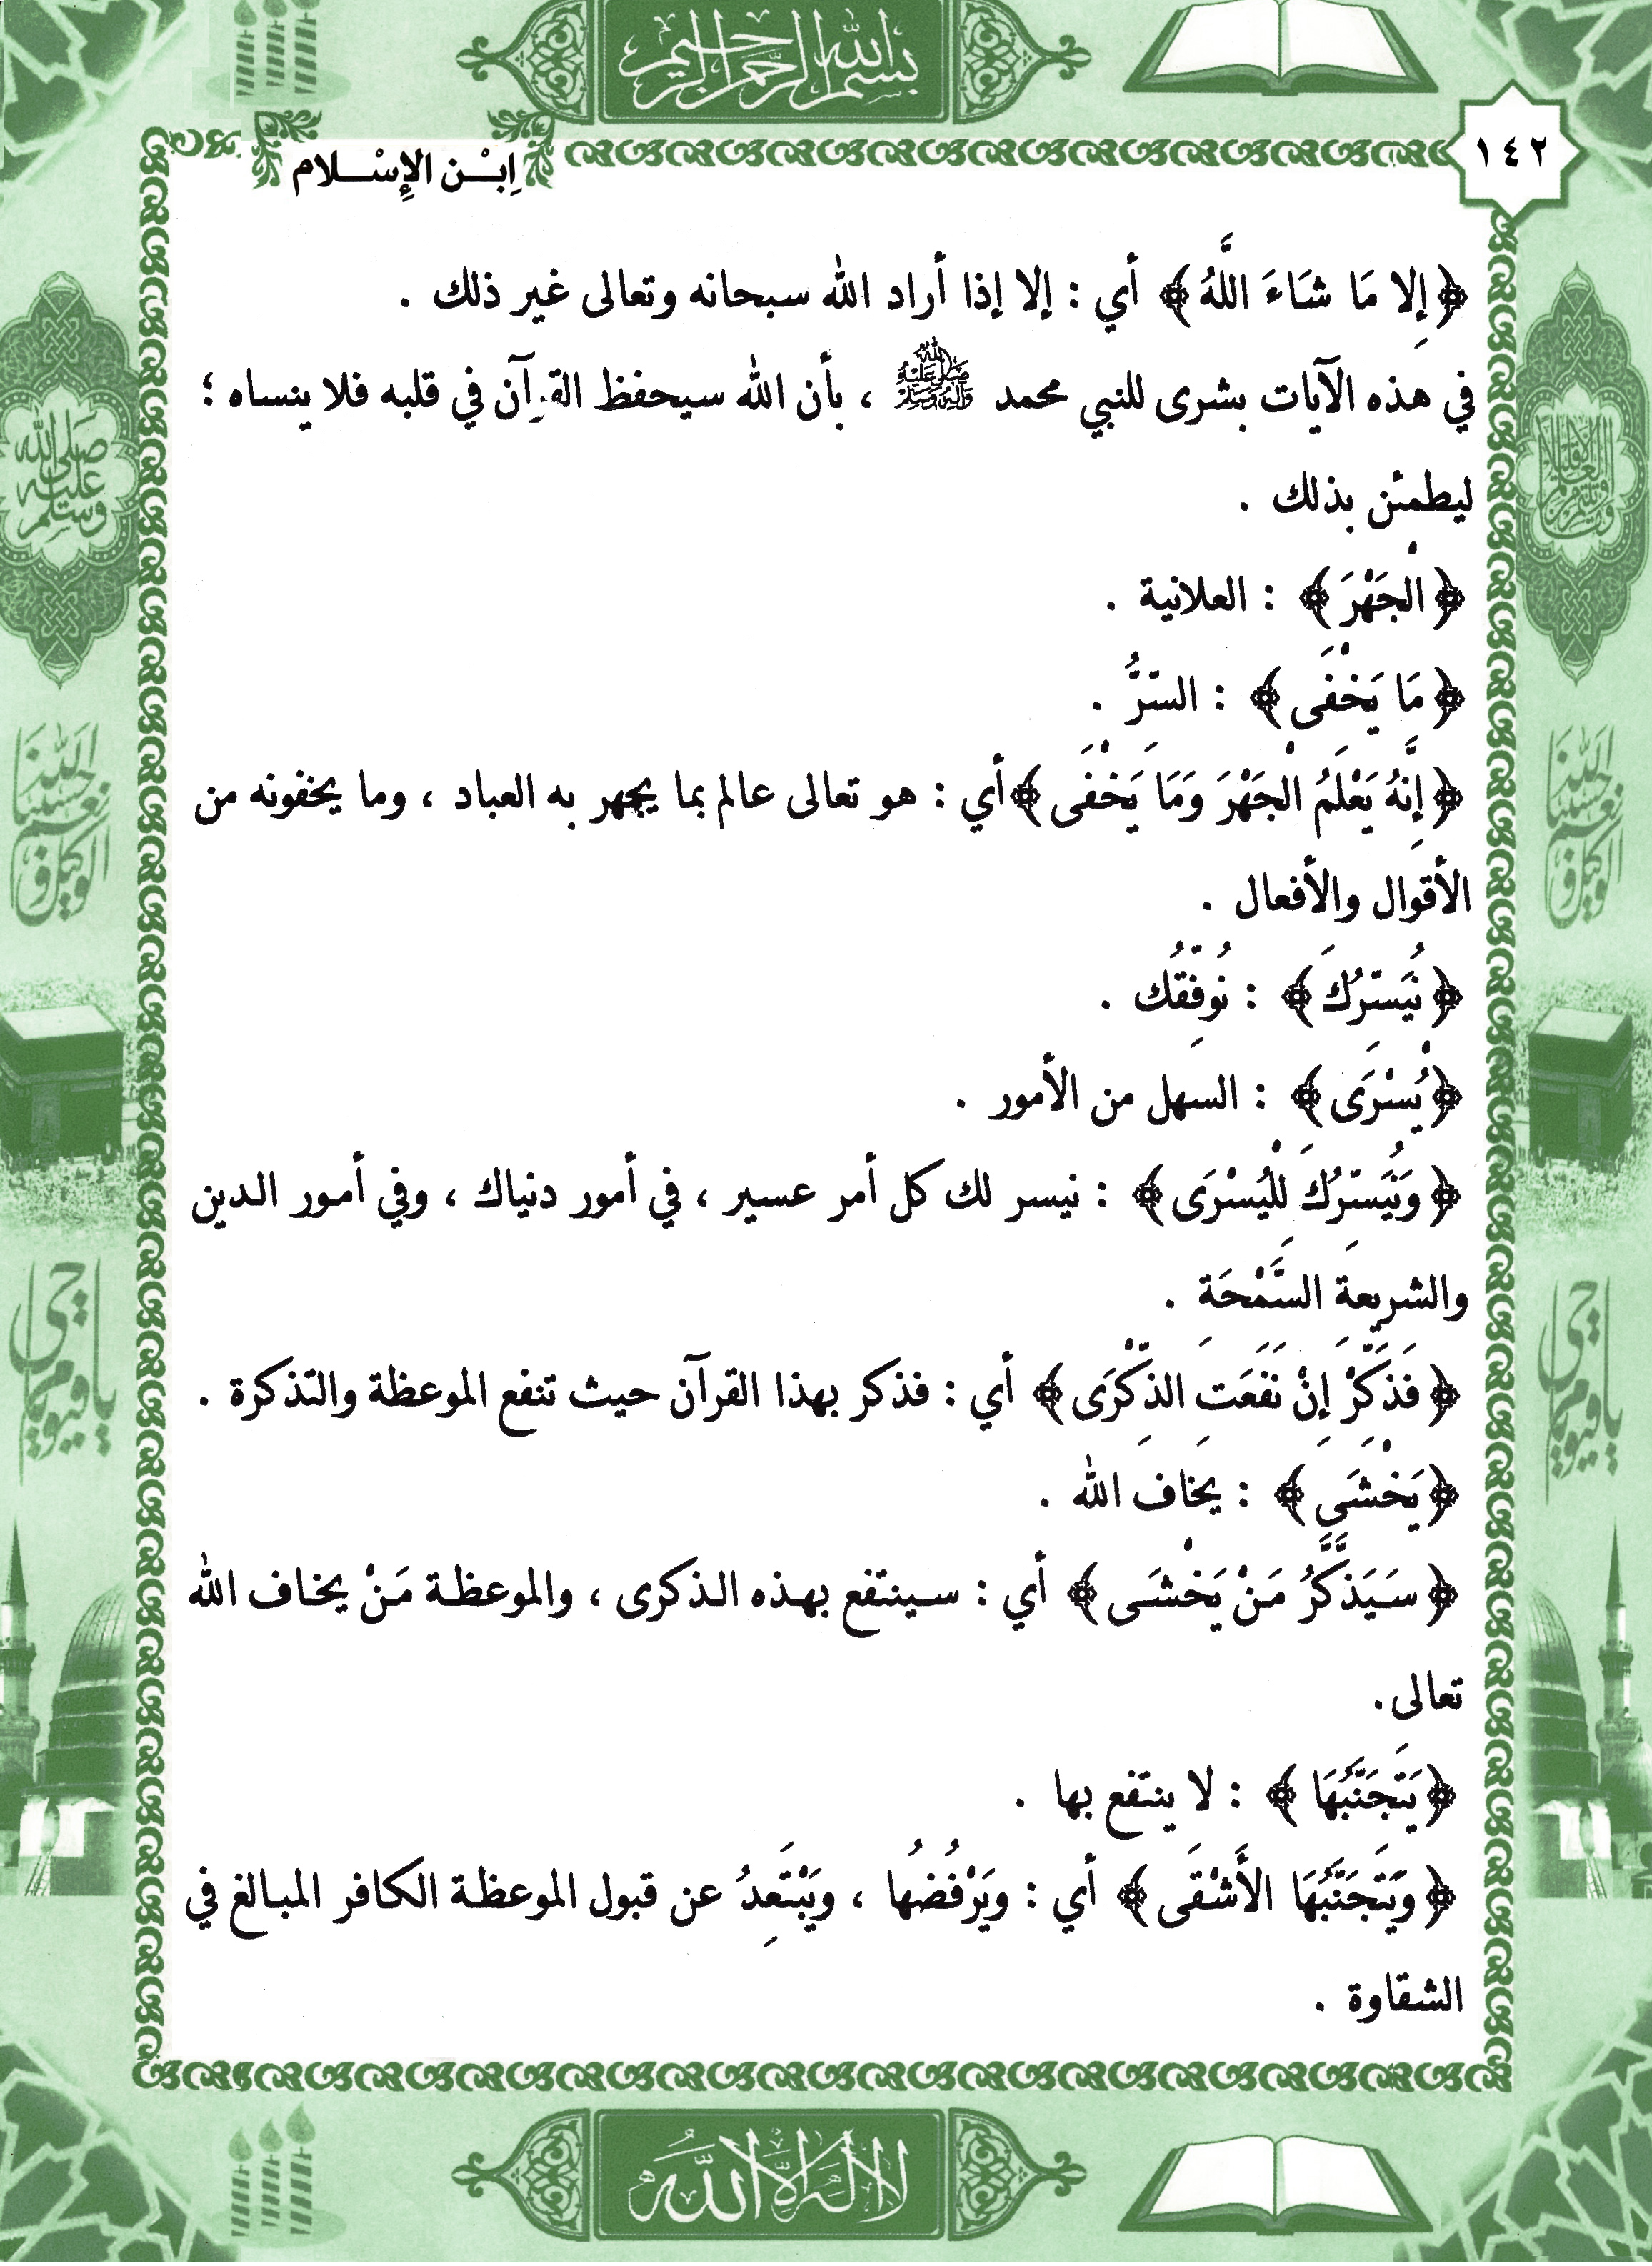 بسم الله الرحمن الرحيم
١٤٢
اِبْـــن الإِسْـــلام
﴿إِلا مَا شَاءَ اللَّهُ﴾ أي : إلا إذا أراد الله سبحانه وتعالى غير ذلك .
في هذه الآيات بشرى للنبي محمد ﷺ ، بأن الله سيحفظ القرآن في قلبه فلا ينساه ؛
ليطمئن بذلك .
﴿الْجَهْرَ﴾ : العلانية .
﴿مَا يَخْفَى﴾ : السّرُّ .
﴿إِنَّهُ يَعْلَمُ الْجَهْرَ وَمَا يَخْفَى﴾أي : هو تعالى عالم بما يجهر به العباد ، وما يخفونه من
الأقوال والأفعال .
﴿نُيَسّرُكَ﴾ : نُوَفِّقُك .
﴿يُسْرَى﴾ : السهل من الأمور .
﴿وَنُيَسِّرُكَ لِلْيُسْرَى﴾ : نيسر لك كل أمر عسير ، في أمور دنياك ، وفي أمـور الـدين
والشريعة السَّمْحَة .
﴿فَذَكِّرْ إِنْ نَفَعَتِ الذِّكْرَى﴾ أي : فذكر بهذا القرآن حيث تنفع الموعظة والتذكرة .
﴿يَخْشَى﴾ : يخاف الله .
﴿سَـيَذَّكَّرُ مَـنْ يَخْشَـى﴾ أي : سـينتفع بهـذه الـذكرى ، والموعظـة مَـنْ يخـاف الله
تعالى.
﴿يَتَجَنَّبُهَا ﴾ : لا ينتفع بها .
﴿وَيَتَجَنَّبُهَا الأَشْقَى﴾ أي : ويَرْفُضُها ، ويَبْتَعِدُ عن قبول الموعظـة الكـافر المبـالغ في
الشقاوة .
لا إله إلا الله
صلى الله عليه وسلم
حسبنا الله ونعم الوكيل
يا حي يا قيوم
حسبنا الله ونعم الوكيل
يا حي يا قيوم